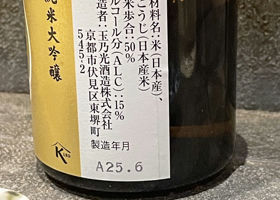 純米大吟醸
材料名:米(日本産)、
こうじ(日本産米)
米歩合:50%
ルコール分(ALC):15%
造者:玉乃光酒造株式会社
京都市伏見区東堺町
545-2
製造年月
A25.6